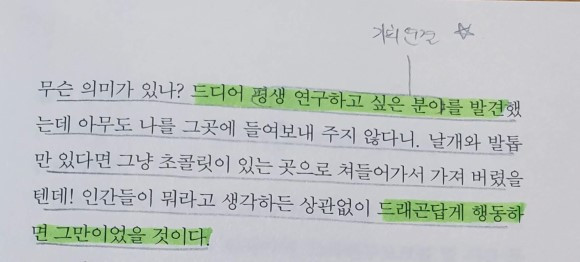 무슨 의미가 있나? 드디어 평생 연구하고 싶은 분야를 발견했
는데 아무도 나를 그곳에 들여보내 주지 않다니. 날개와 발톱
만 있다면 그냥 초콜릿이 있는 곳으로 쳐들어가서 가져 버렸을
텐데! 인간들이 뭐라고 생각하든 상관없이 드래곤답게 행동하
면 그만이었을 것이다.